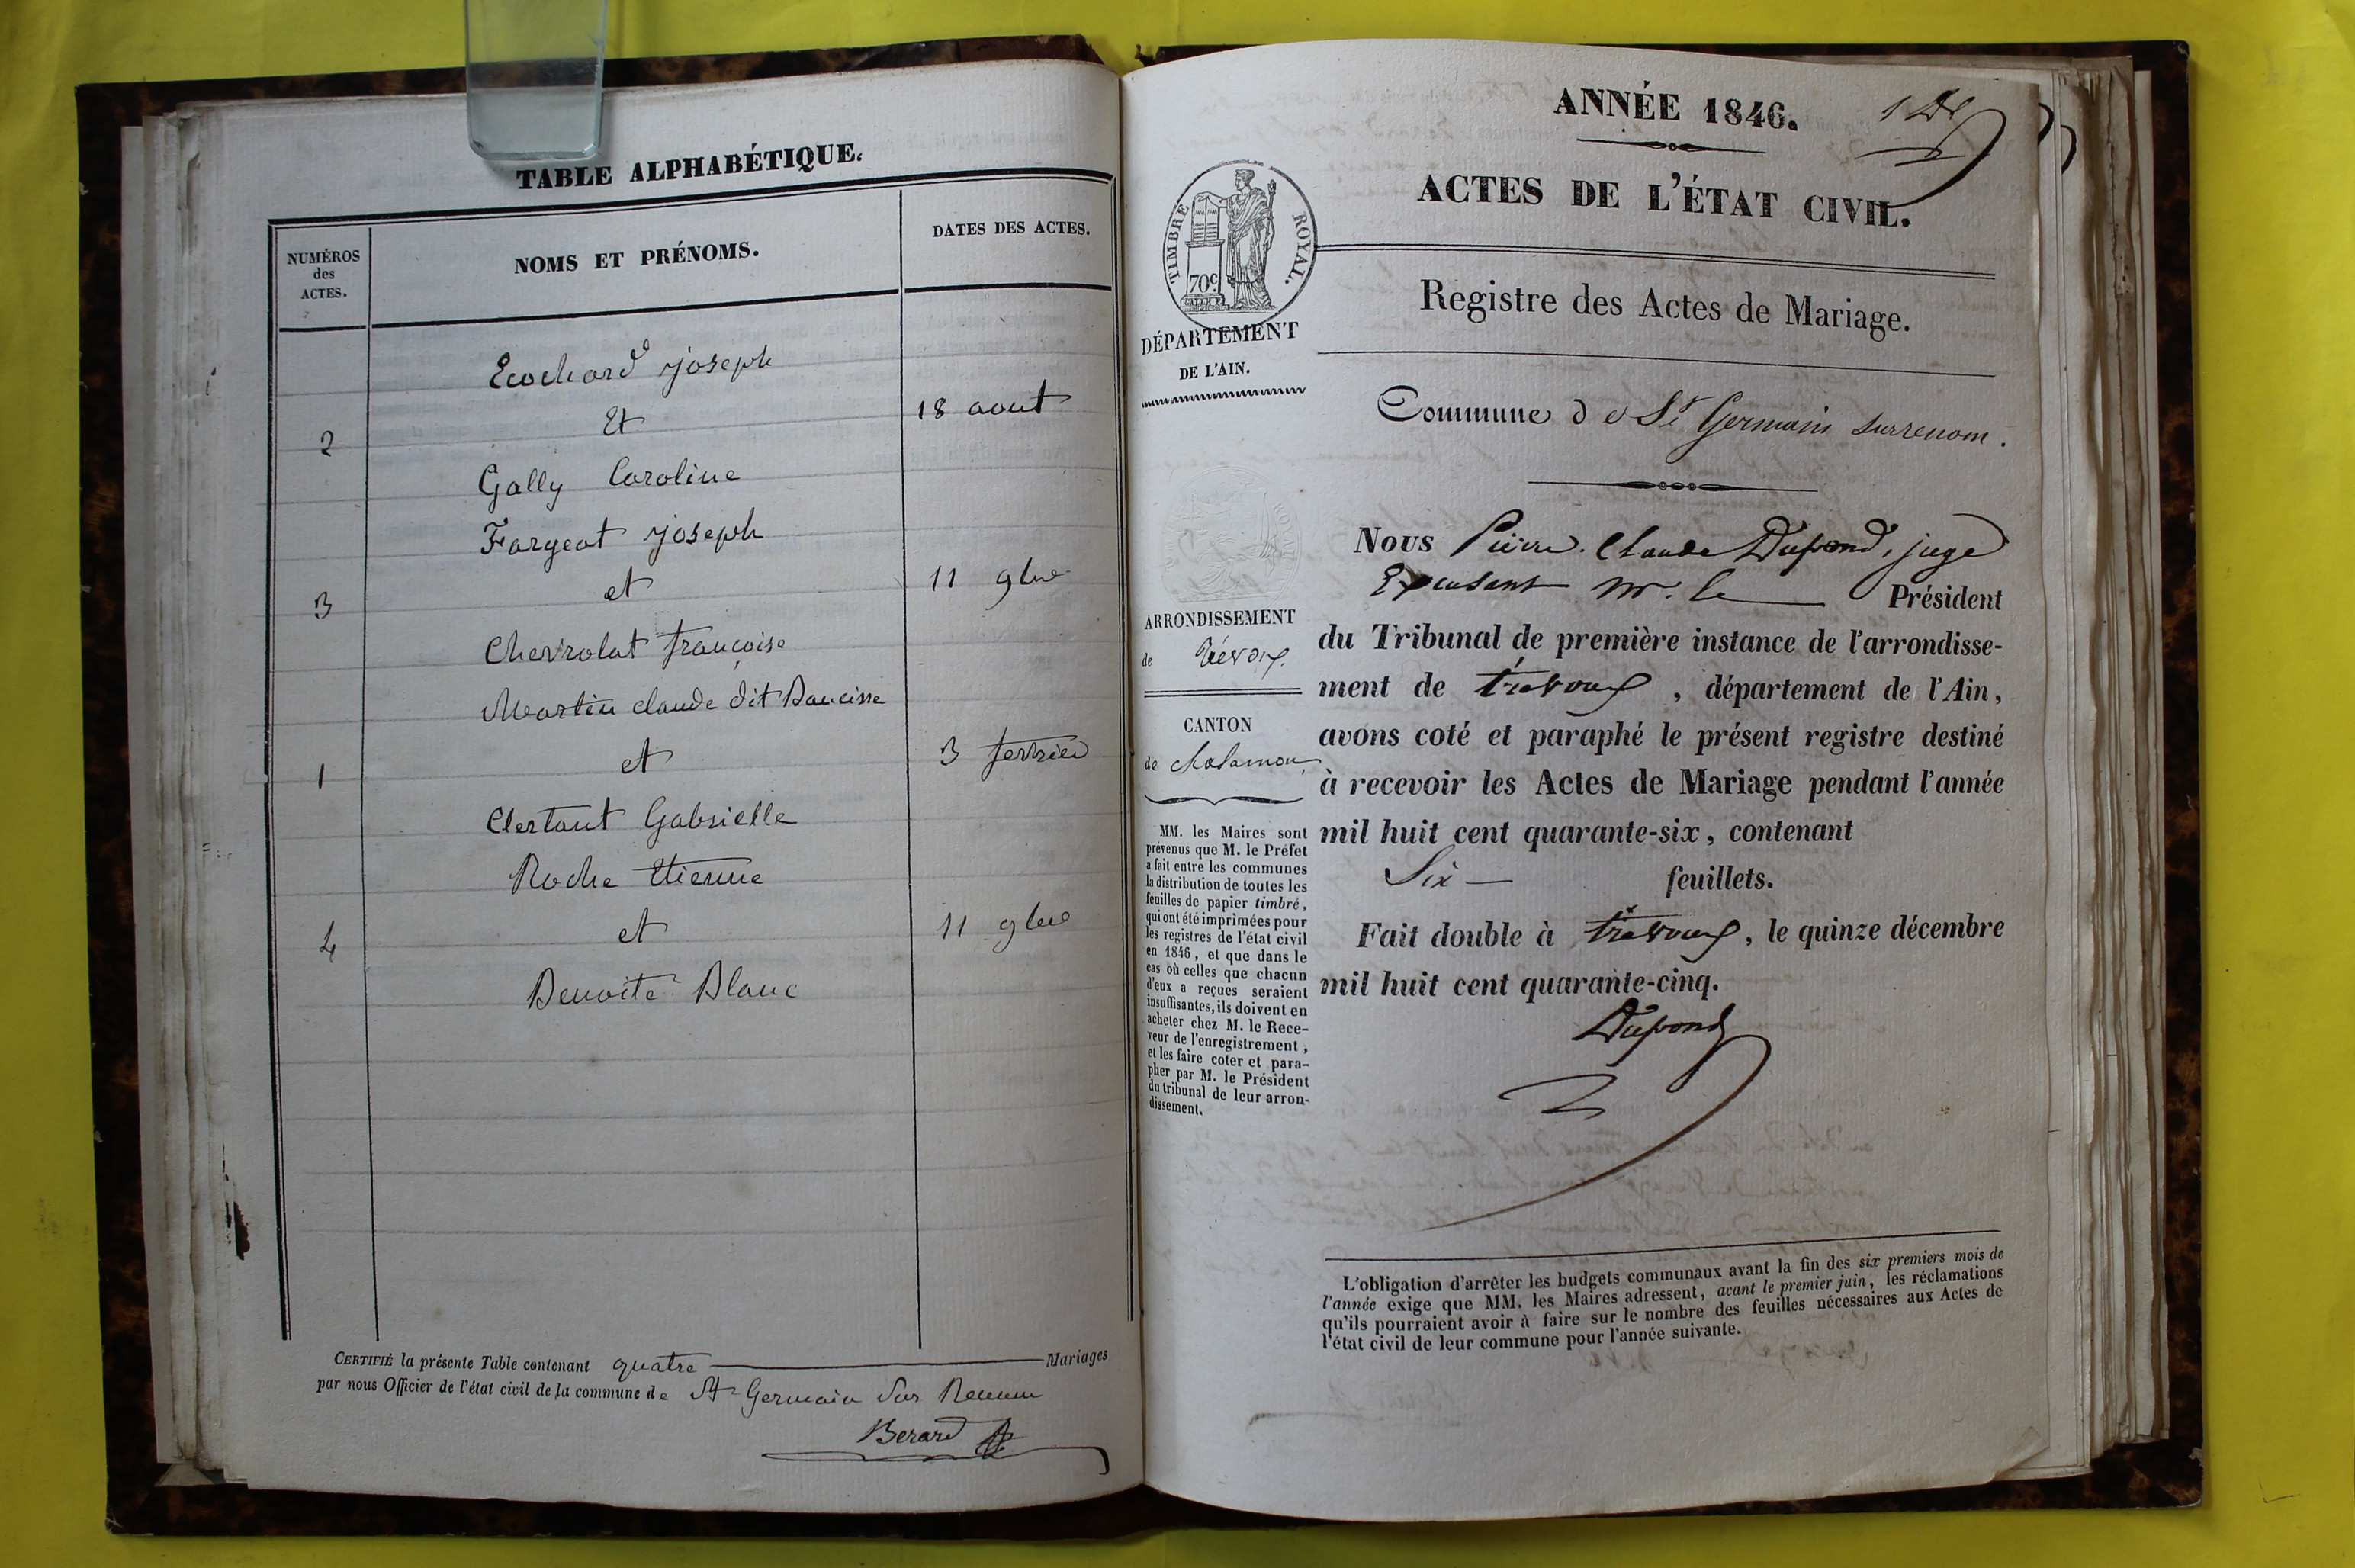 TABLE ALPHABÉTIQUE.
NUMÉROS
des
ACTES.
NOMS ET PRÉNOMS.
DATES DES ACTES.
Ecochard joseph
2 Et 18 aout
Gally Caroline
Fargeot joseph
3 et 11 9bre
Chevrolat françoise
Martin claude dit
1 et 3 fevrier
Clertant Gabrielle
Roche Etienne
4 et 11 9bre
Benoite Blanc
CERTIFIÉ la présente Table contenant quatre Mariages
par nous Officier de l'état civil de la commune de St Germain Sur Renom
Berard
ANNÉE 1846.
ACTES DE L'ÉTAT CIVIL.
TIMBRE ROYAL.
70c
DÉPARTEMENT
DE L'AIN.
Registre des Actes de Mariage.
Commune de St Germain surrenom.
ARRONDISSEMENT
de Trévoux
CANTON
de chalamon
MM. les Maires sont
prévenus que M. le Préfet
a fait entre les communes
la distribution de toutes les
feuilles de papier timbré,
qui ont été imprimées pour
les registres de l'état civil
en 1846, et que dans le
cas où celles que chacun
d'eux a reçues seraient
insuffisantes, ils doivent en
acheter chez M. le Rece-
veur de l'enregistrement,
et les faire coter et para-
pher par M. le Président
du tribunal de leur arron-
dissement.
Nous Pierre. Claude Dupond, juge
Expeusant mr. le Président
du Tribunal de première instance de l'arrondisse-
ment de trévoux, département de l'Ain,
avons coté et paraphé le présent registre destiné
à recevoir les Actes de Mariage pendant l'année
mil huit cent quarante-six, contenant
Six feuillets.
Fait double à trévoux, le quinze décembre
mil huit cent quarante-cinq.
Dupond
L'obligation d'arrêter les budgets communaux avant la fin des six premiers mois de
l'année exige que MM. les Maires adressent, avant le premier juin, les réclamations
qu'ils pourraient avoir à faire sur le nombre des feuilles nécessaires aux Actes de
l'état civil de leur commune pour l'année suivante.